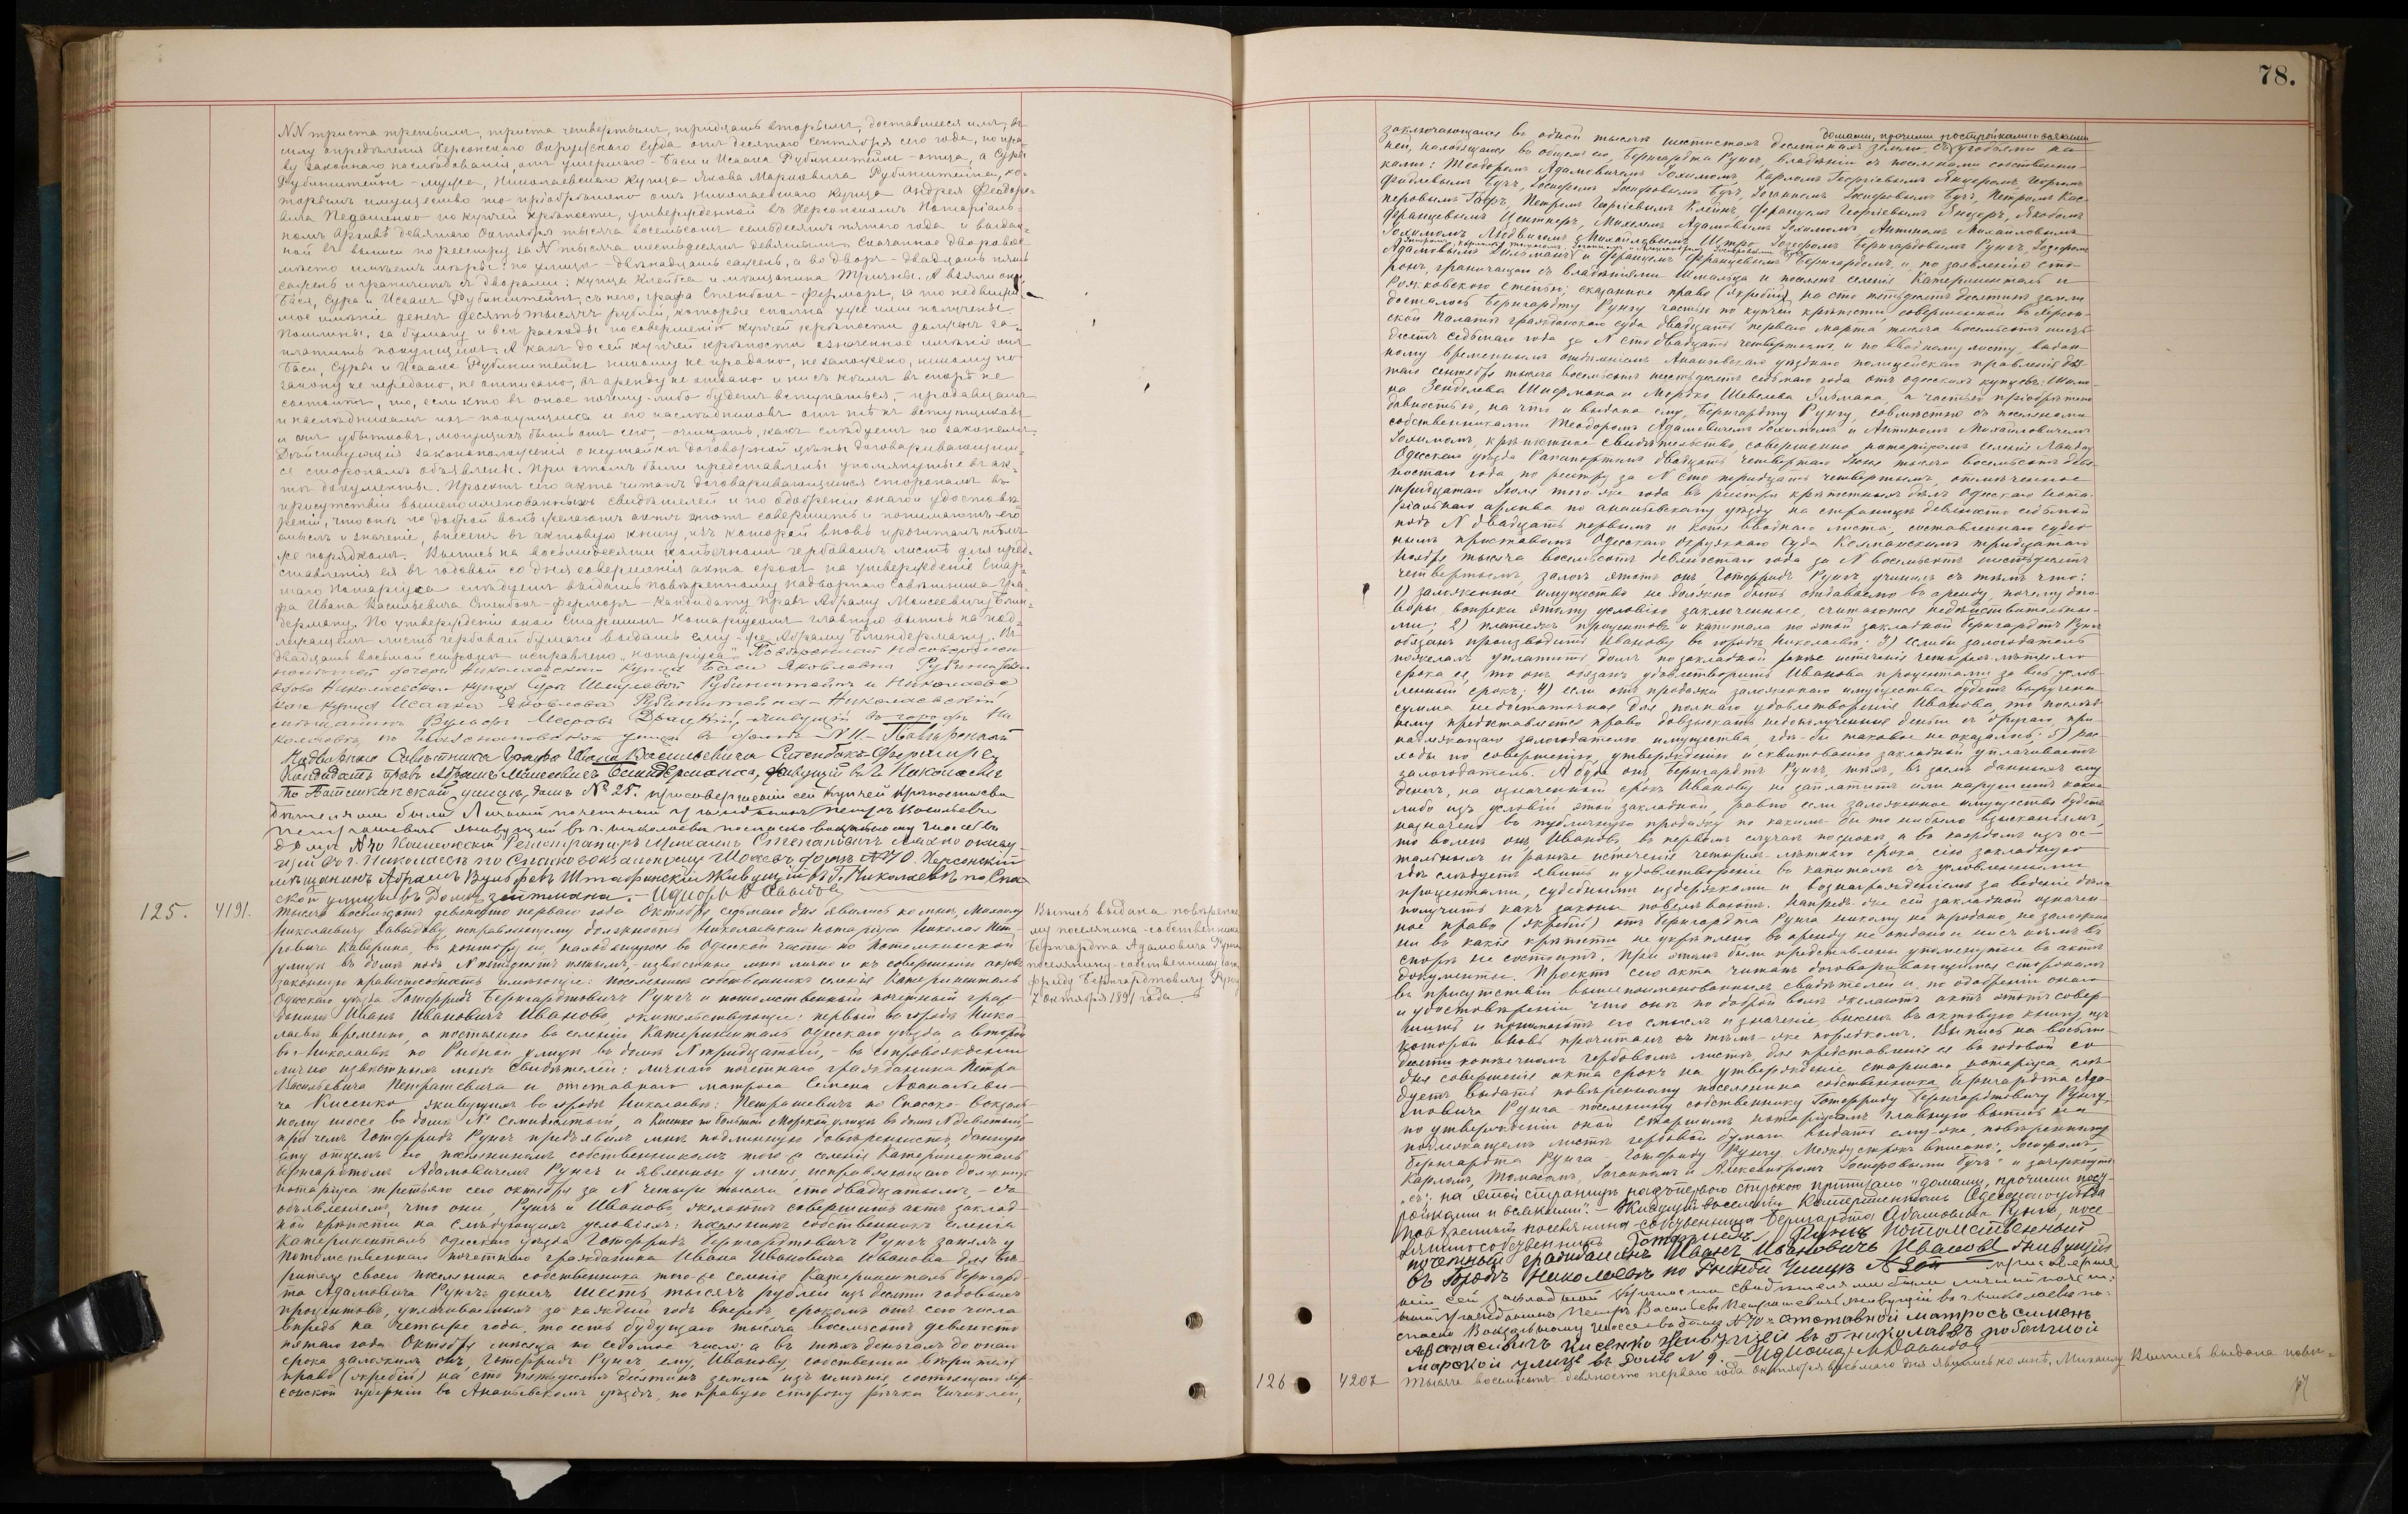 NN триста третьимъ, триста четвертымъ, тридцать вторымъ, доставшееся имъ, въ
силу опредѣленія Херсонскаго Окружнаго Суда отъ десятаго Сентября сего года, по пра-
ву законнаго наслѣдованія, отъ умершаго - Баси и Исаака Рубинштейнъ - отца, а Суры
Рубинштейнъ - мужа, Николаевскаго купца Якова Марковича Рубинштейна, ко-
торымъ имущество то пріобрѣтено отъ Николаевскаго купца Андрея Федоро-
вича Педашенко по купчей крѣпости, утвержденной въ Херсонскомъ Нотаріаль-
номъ Архивѣ девятаго Октября тысяча восемьсотъ семьдесятъ пятаго года и выдан-
ной въ выписи по реестру за N тысяча шестьдесятъ девятымъ. Означенное дворовое
мѣсто имѣетъ мѣры: по улицѣ - двѣнадцать саженъ, а во дворъ - двадцать пять
саженъ и граничитъ съ дворами: купца Клейбса и мѣщанина Тришны. А взяли они
Бася, Сура и Исаакъ Рубинштейнъ, съ него, графа Стенбокъ-Ферморъ, за то недвижи-
мое имѣніе денегъ десять тысячъ рублей, которые сполна уже ими получены.
Пошлины, за бумагу и всѣ расходы по совершенію купчей крѣпости долженъ за-
платить покупщикъ. А какъ до сей купчей крѣпости означенное имѣніе отъ
Баси, Суры и Исаака Рубинштейнъ никому не продано, не заложено, никому по
закону не передано, не отписано, въ аренду не отдано и ни съ кѣмъ въ спорѣ не
состоитъ, то, если кто въ оное почему-либо будетъ вступаться, - продавцамъ
и наслѣдникамъ ихъ - покупщика и его наслѣдниковъ отъ тѣхъ вступщиковъ
и отъ убытковъ, могущихъ быть отъ сего, - очищать, какъ слѣдуетъ по законамъ.
Дѣйствующія законоположенія о неутайкѣ договорной цѣны договаривающим-
ся сторонамъ объявлены. При этомъ были представлены упомянутые въ ак-
тѣ документы. Проектъ сего акта читанъ договаривающимся сторонамъ въ
присутствіи вышепоименованныхъ свидѣтелей и по одобреніи онаго и удостовѣ-
реніи, что они по доброй волѣ желаютъ актъ этотъ совершить и понимаютъ его
смыслъ и значеніе, внесенъ въ актовую книгу, изъ которой вновь прочитанъ тѣмъ
же порядкомъ. Выпись на восьмидесяти копѣечномъ гербовомъ листѣ для пред-
ставленія ея въ годовый со дня совершенія акта срокъ на утвержденіе Стар-
шаго Нотаріуса слѣдуетъ выдать повѣренному Надворнаго Совѣтника Гра-
фа Ивана Васильевича Стенбокъ-Ферморъ - Кандидату Правъ Абраму Моисеевичу Блин-
дерману. По утвержденіи оной Старшимъ Нотаріусомъ главную выпись на над-
лежащемъ листѣ гербовой бумаги выдать ему-же Абраму Блиндерману. Въ
двадцать восьмой строкѣ исправлено „нотаріуса“.
дочери Николаевскаго купца Баси Яковлевны Рубинштейнъ
вдовы Николаевскаго купца Суры Рубинштейнъ и Николаев-
скаго купца Исаака Яковлева Рубинштейна - Николаевскій
мѣщанинъ Вульфъ живущій въ городѣ Ни-
колаевѣ, въ домѣ N 11. - Повѣренный
Надворнаго Совѣтника Графа Ивана Васильевича Стенбокъ-Ферморъ,
Кандидатъ правъ Абрамъ Моисеевичъ Блиндерманъ, живущій въ г. Николаевѣ
по Потемкинской улицѣ, домъ № 25. При совершеніи сей купчей крѣпости сви-
дѣтелями были Личный почетный гражданинъ Петръ Васильевъ
Петрашевичъ живущій въ г. Николаевѣ по спаско вокзальному шоссе въ
домѣ №70 Регистраторъ Степановичъ
въ г. Николаевѣ по Спаско вокзальному Шоссе въ домѣ №70. Херсонскій
мѣщанинъ Абрамъ Вульфовъ Живущій въ г. Николаевѣ по Спа-
ской улицѣ въ Домѣ
125. 4191. Тысяча восемьсотъ девяносто перваго года Октября седьмаго дня явились ко мнѣ, Михаилу
Николаевичу Давыдову исправляющему должность Николаевскаго нотаріуса Николая Пет-
ровича Каверина, въ контору его, находящуюся въ Одесской части по Потемкинской
улицѣ въ домѣ подъ N пятьдесятъ пятымъ, - извѣстные мнѣ лично и къ совершенію актовъ
законную правоспособность имѣющіе: поселянинъ собственникъ селенія Катериненталь
Одесскаго уѣзда Готфридъ Бернгардтовичъ Рунгъ и потомственный почетный граж-
данинъ Иванъ Ивановичъ Ивановъ, жительствующіе: первый въ городѣ Нико-
лаевѣ временно, а постоянно въ селеніи Катериненталь Одесскаго уѣзда, а второй
въ Николаевѣ по Рыбной улицѣ въ домѣ N тридцатый, - въ сопровожденіи
лично извѣстныхъ мнѣ свидѣтелей: личнаго почетнаго гражданина Петра
Васильевича Петрашевича и отставнаго матроса Семена Афанасьеви-
ча Кисенко живущихъ въ городѣ Николаевѣ: Петрашевичъ по Спасско-вокзаль-
ному шоссе въ домѣ N семидесятый, а Кисенко по Большой Морской улицѣ въ домѣ N девятый,
при чемъ Готфридъ Рунгъ предъявилъ мнѣ подлинную довѣренность, данную
ему отцемъ его поселяниномъ собственникомъ того же селенія Катериненталь
Бернгардтомъ Адамовичемъ Рунгъ и явленную у меня, исправляющаго должность
нотаріуса третьяго сего октября за N четыре тысячи сто двадцатымъ, - съ
объявленіемъ, что они, Рунгъ и Ивановъ, желаютъ совершить актъ заклад-
ной крѣпости на слѣдующихъ условіяхъ: поселянинъ собственникъ селенія
Катериненталь Одесскаго уѣзда Готфридъ Бернгардтовичъ Рунгъ занялъ у
потомственнаго почетнаго гражданина Ивана Ивановича Иванова для вѣ-
рителя своего поселянина собственника того-же селенія Катериненталь Бернгард-
та Адамовича Рунга денегъ шесть тысячъ рублей изъ десяти годовыхъ
процентовъ, уплачиваемыхъ за каждый годъ впередъ, срокомъ отъ сего числа
впредь на четыре года, то есть будущаго тысяча восемьсотъ девяносто
пятаго года Октября мѣсяца по седьмое число; а въ тѣхъ деньгахъ до онаго
срока заложилъ онъ, Готфридъ Рунгъ, ему, Иванову, собственное вѣрителя
право (жребій) на сто пятьдесятъ десятинъ земли изъ имѣнія, состоящаго Хер-
сонской губерніи въ Ананьевскомъ уѣздѣ, по правую сторону рѣчки Чичиклеи,
Выпись выдана повѣренно-
му поселянина-собственника
Бернгардта Адамовича Рунга
поселянину-собственнику Гот-
фриду Бернгардтовичу Рунгу
7 октября 1891 года.
78.
домами, прочими постройками и всякими
заключающагося въ одной тысячѣ шестистахъ десятинахъ земли, съ угодьями на
ней, находящагося въ общемъ его, Бернгардта Рунгъ, владѣніи съ поселянами собственни-
ками: Теодоромъ Адамовичемъ Іохимомъ, Карломъ Георгіевымъ Янцеромъ, Георгіемъ
Фидлевымъ Бутъ, Іосифомъ Іосифовымъ Бутъ, Іоганномъ Іосифовымъ Бутъ, Петромъ Кас-
перовымъ Гафъ, Петромъ Георгіевымъ Клейнъ, Францемъ Георгіевымъ Янцеръ, Якобомъ
Францевымъ Центнеръ, Михелемъ Адамовымъ Іохимомъ, Антономъ Михайловымъ
Іохимомъ, Людвигомъ Михайловымъ Штро, Іозефомъ Бернгардовымъ Рунгъ, Іозефомъ
Адамовымъ и Францемъ Францевымъ Бернгардомъ, и, по заявленію сто-
ронъ, граничащаго съ владѣніями Шмальца и поселянъ селенія Катериненталь и
Рожковскою степью; сказанное право (жребій) на сто пятьдесятъ десятинъ земли
досталось Бернгардту Рунгу частью по купчей крѣпости, совершенной въ Херсон-
ской Палатѣ гражданскаго суда двадцать перваго марта тысяча восемьсотъ шесть-
десятъ седьмаго года за N сто двадцать четвертымъ, и по вводному листу, выдан-
ному временнымъ отдѣленіемъ Ананьевскаго уѣзднаго полицейскаго правленія
сентября тысяча восемьсотъ шестьдесятъ седьмаго года отъ одесскихъ купцовъ: Шлио-
ма Зенделева Шифмана и Мордка Шевелева а частью пріобрѣтено
давностью, на что и выдано ему, Бернгардту Рунгу, совмѣстно съ поселянами
собственниками Теодоромъ Адамовичемъ Іохимомъ и Антономъ Михайловичемъ
Іохимомъ, крѣпостное свидѣтельство, совершенное нотаріусомъ селенія Ландау
Одесскаго уѣзда Рапапортомъ двадцать четвертаго Іюля тысяча восемьсотъ девя-
ностаго года по реестру за N сто тридцать четвертымъ, отмѣченное
тридцатаго Іюля того-же года въ реестрѣ крѣпостныхъ дѣлъ Одесскаго Нота-
ріальнаго архива по ананьевскому уѣзду на страницѣ девяносто седьмой
подъ N двадцать первымъ и копія вводнаго листа, составленнаго судеб-
нымъ приставомъ Одесскаго окружнаго Суда Келманскимъ тридцатаго
Ноября тысяча восемьсотъ девяностаго года за N восемьсотъ шестьдесятъ
четвертымъ, залогъ этотъ онъ, Готфридъ Рунгъ, учинилъ съ тѣмъ что:
1) заложенное имущество не должно быть отдаваемо въ аренду, почему дого-
воры, вопреки этому условію заключенные, считаются недѣйствительны-
ми; 2) платежъ процентовъ и капитала по этой закладной Бернгардтъ Рунгъ
обязанъ производить Иванову въ городѣ Николаевѣ; 3) если бы залогодатель
пожелалъ уплатить долгъ по закладной ранѣе истеченія четырехъ-лѣтняго
срока ея, то онъ обязанъ удовлетворить Иванова процентами за весь услов-
ленный срокъ; 4) если отъ продажи заложеннаго имущества будетъ выручена
сумма недостаточная для полнаго удовлетворенія Иванова, то послѣд-
нему предоставляется право довзыскать недополученныя деньги съ другаго, при-
надлежащаго залогодателю имущества, гдѣ-бы таковое не оказалось; 5) рас-
ходы по совершенію, утвержденію и сквитованію закладной уплачиваетъ
залогодатель. А буде онъ, Бернгардтъ Рунгъ, тѣхъ, въ заемъ данныхъ ему
денегъ, на означенный срокъ Иванову не заплатитъ или нарушитъ какое
либо изъ условій этой закладной, равно если заложенное имущество будетъ
назначено въ публичную продажу по какимъ бы то ни было взысканіямъ,
то воленъ онъ, Ивановъ, въ первомъ случаѣ по срокѣ, а въ каждомъ изъ ос-
тальныхъ и ранѣе истеченія четырехъ-лѣтняго срока сію закладную
гдѣ слѣдуетъ явить и удовлетвореніе въ капиталѣ съ условленными
процентами, судебными издержками и вознагражденіемъ за веденіе дѣла
получить какъ законы повелѣваютъ. Напредъ-же сей закладной означен-
ное право (жребій) отъ Бернгардта Рунга никому не продано, не заложено
ни въ какія крѣпости не укрѣплено въ аренду не отдано и ни съ кѣмъ въ
спорѣ не состоитъ. При этомъ были представлены упомянутые въ актѣ
документы. Проектъ сего акта читанъ договаривающимся сторонамъ
въ присутствіи вышепоименованныхъ свидѣтелей и, по одобреніи онаго
и удостовѣреніи, что они по доброй волѣ желаютъ актъ этотъ совер-
шить и понимаютъ его смыслъ и значеніе, внесенъ въ актовую книгу, изъ
которой вновь прочитанъ тѣмъ-же порядкомъ. Выпись на восьми-
десяти копѣечномъ гербовомъ листѣ, для представленія ея въ годовой со
дня совершенія акта срокъ на утвержденіе старшаго нотаріуса, слѣ-
дуетъ выдать повѣренному поселянина собственника Бернгардта Ада-
мовича Рунга поселянину собственнику Готфриду Бернгардтовичу Рунгу,
по утвержденіи оной Старшимъ нотаріусомъ главную выпись на
надлежащемъ листѣ гербовой бумаги выдать ему-же, повѣренному
Бернгардта Рунга - Готфриду Рунгу. Между строкъ вписано: „Іосифомъ,
Карломъ, Томасомъ, Іоганномъ и Александромъ Іосифовыми Бутъ“ и зачеркнуто
„съ“; на этой страницѣ надъ первою строкою приписано „домами, прочими пост-
ройками и всякими“. - Живущій въ селеніи Катериненталь Одесскаго уѣзда
повѣренный поселянина-собственника Бернгардта Адамовича Рунга, посе-
лянинъ собственникъ Готфридъ Рунгъ. Потомственный
почетный гражданинъ Иванъ Ивановичъ Ивановъ живущій
въ городѣ Николаевѣ по Рыбной улицѣ № 30й при соверше-
ніи сей закладной крѣпости свидѣтелями были личный почет-
ный гражданинъ Петръ Васильевъ Петрашевичъ живущій въ г. Николаевѣ по
спаско Вокзальному шоссе въ домѣ №70 и отставной матросъ Семенъ
Афанасьевичъ Кисенко живущій въ г. Николаевѣ по большой
морской улицѣ въ домѣ N 9. - И.д. Нотаріуса М Давыдовъ
126 4202 Тысяча восемьсотъ девяносто перваго года октября восьмаго дня явились ко мнѣ, Михаилу
Выпись выдана повѣ-